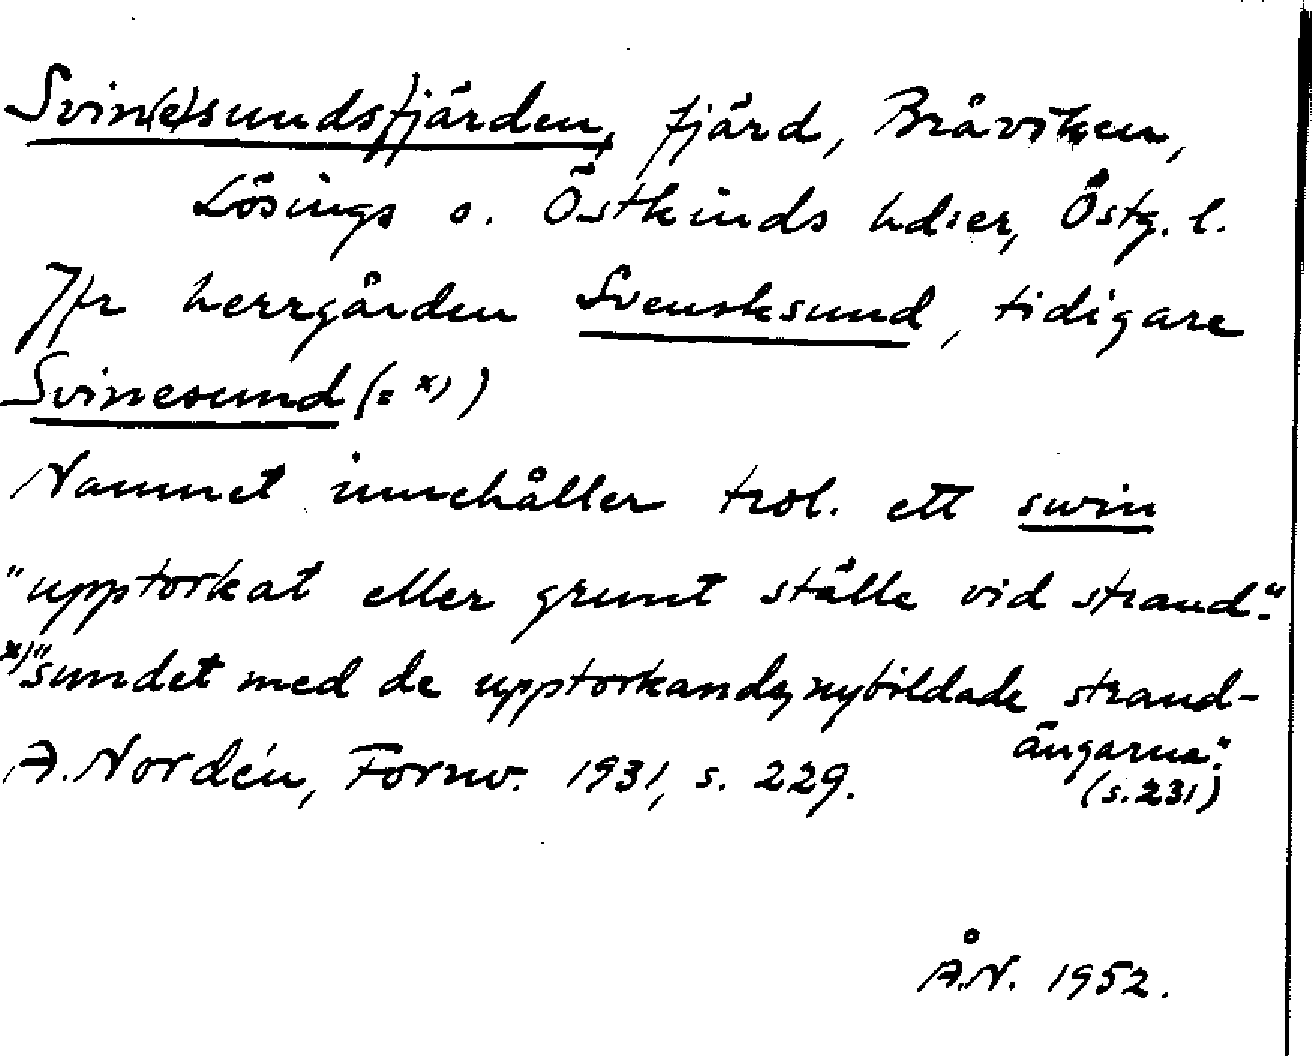 Svin(e)sundsfjärden, fjärd, Bråviken,
Lösings o. Östkinds hdser, Östg. l.
Jfr herrgården Svensksund, tidigare
Svinesund (= x) )
Namnet innehåller trol. ett swin
"upptorkat eller grunt ställe vid strand".
x) "sundet med de upptorkande, nybildade strand-
ängarna".
(s. 231)
A. Nordén, Fornv. 1931, s. 229.
Å.N. 1952.